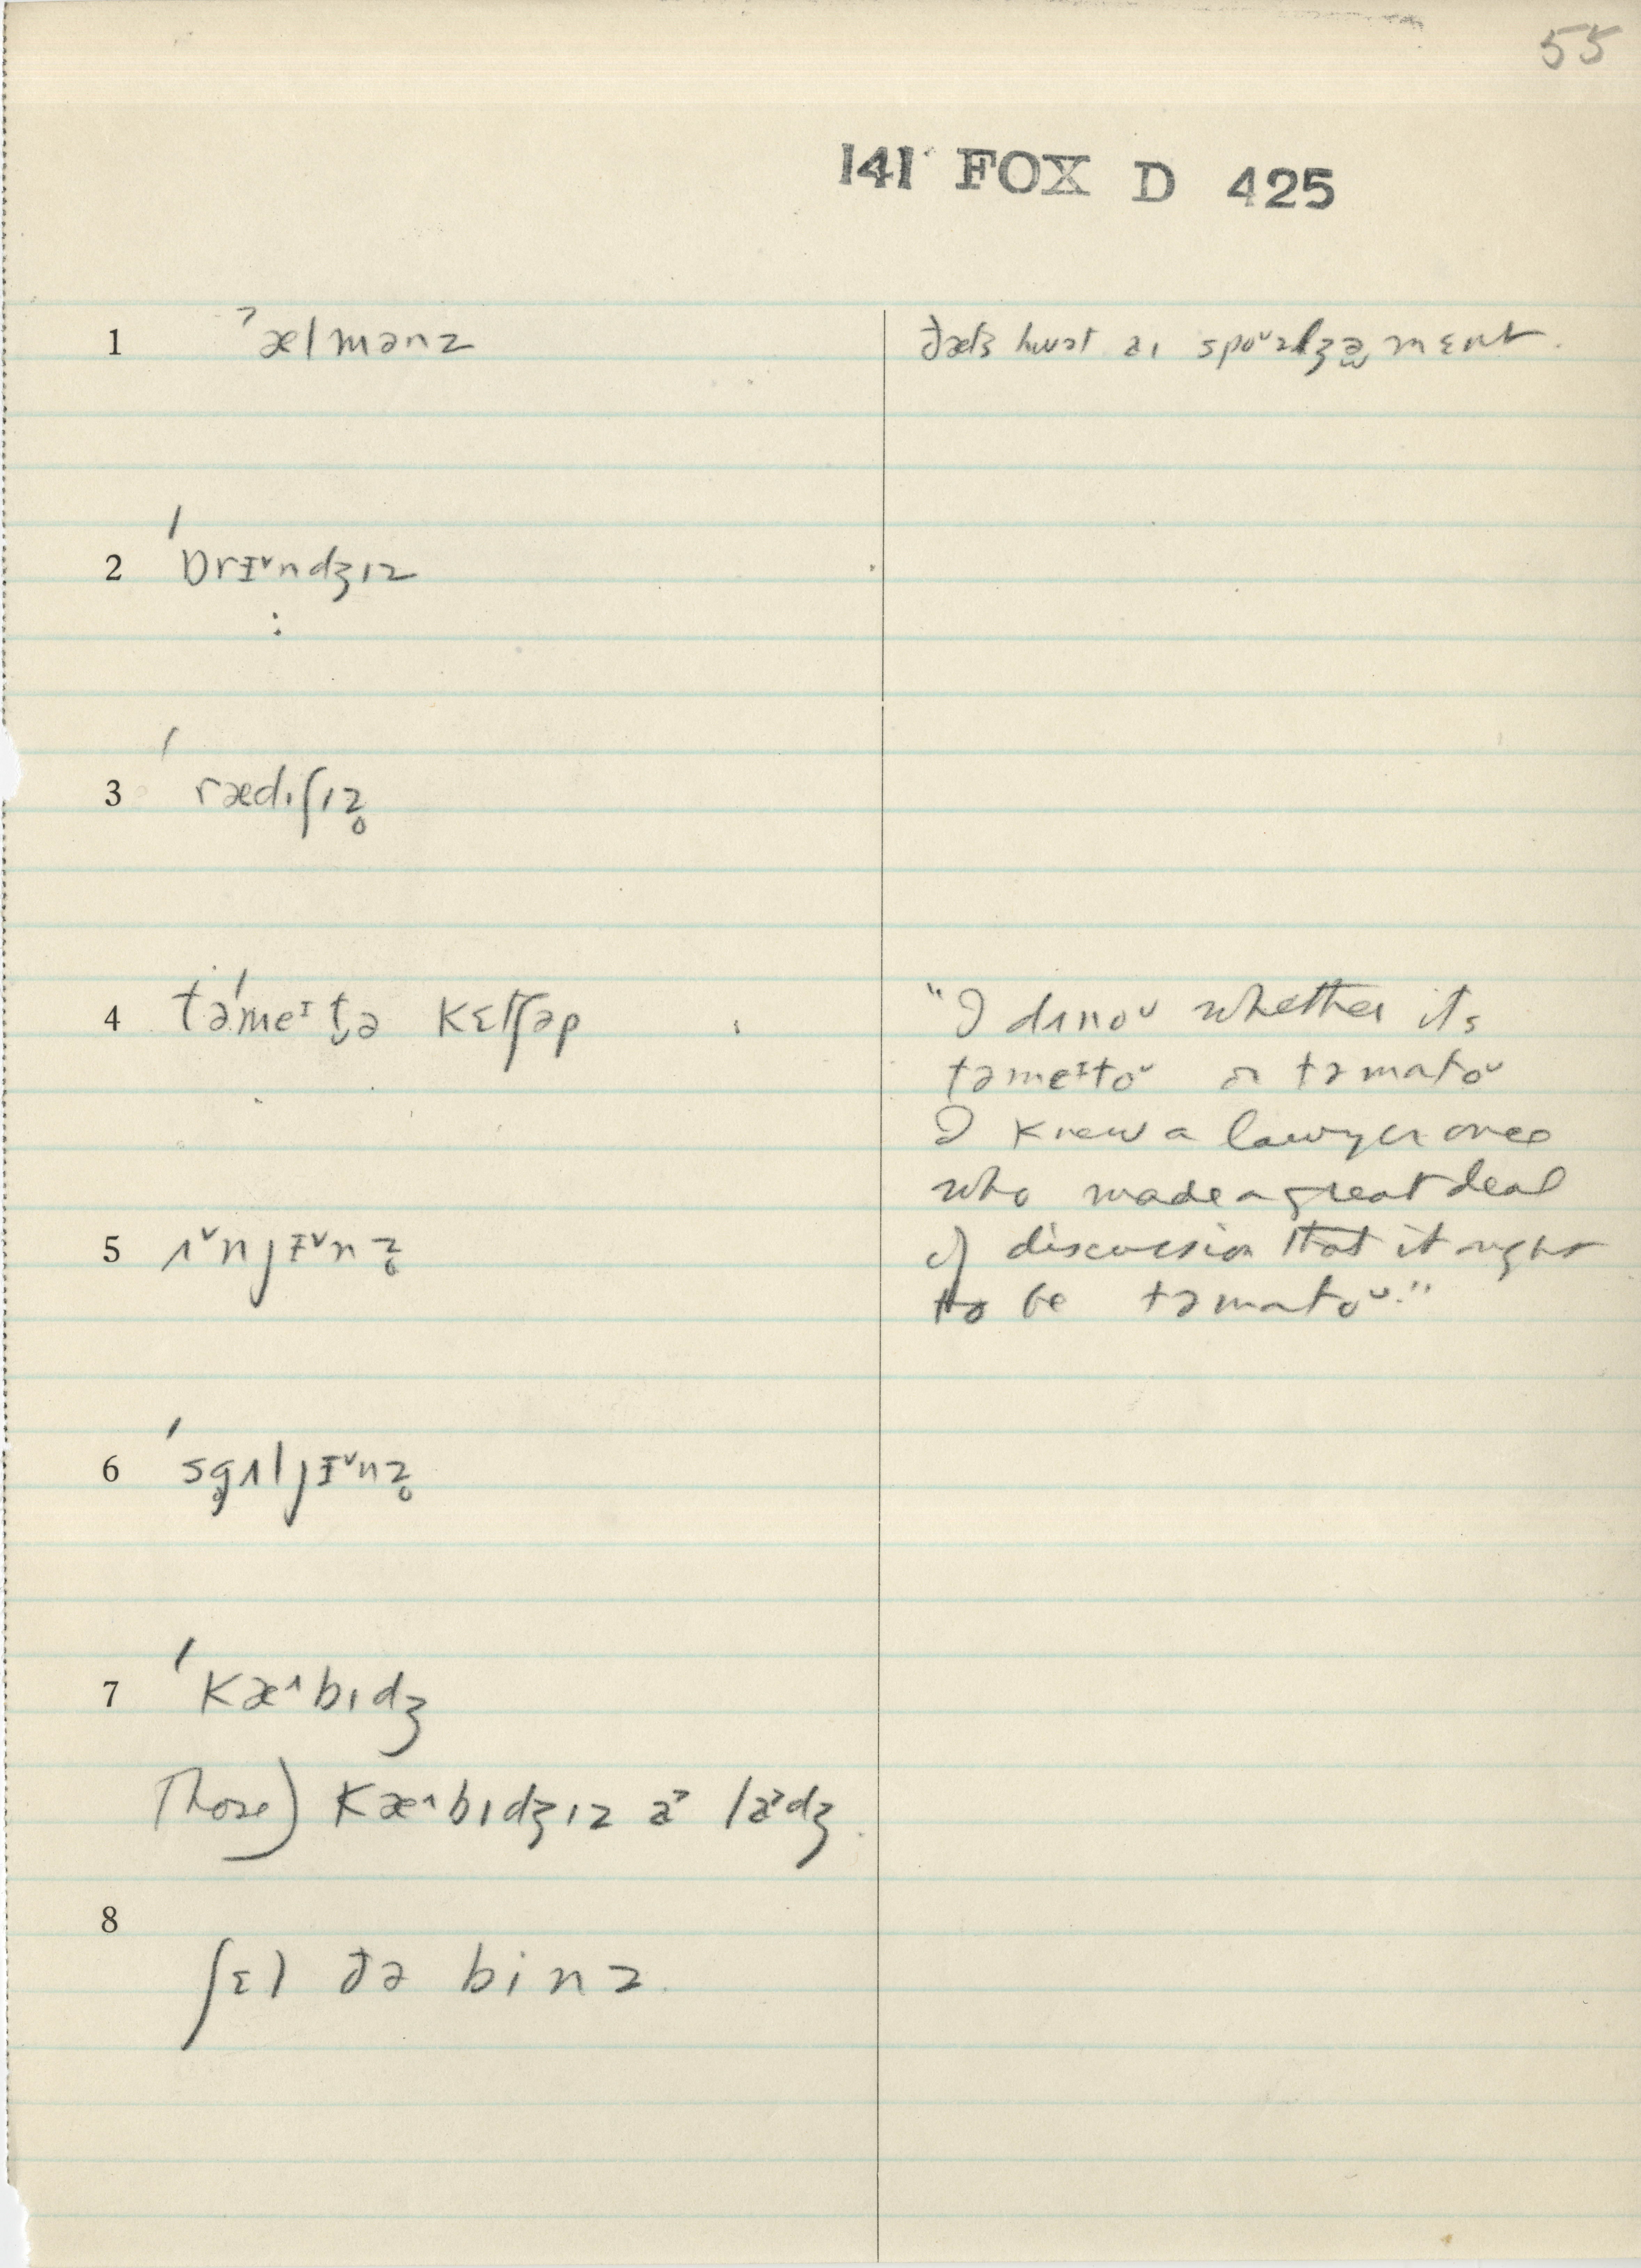 55
141 FOX D 425
1 ˀælmənz
ðæts hwət aɪ
2 ˈɒrɪ̵ˇndʒɪz
3 ˈrædɪʃɪz̥
4 təˈmeᴵt̬ə kɛtʃəp
"I dɪnoᵛ whether its
təmeᴵtoᵛ or təmatoᵛ
I knew a lawyer once
who made a great deal
of discussion that it ought
to be təmatoᵛ."
5 ʌˇnjɪ̵ˇnz̥
6 ˈsg̥ʌljɪ̵ˇnz̥
7 ˈkæ^bɪdʒ
Those) kæ^bɪdʒɪz aˀ laˀdʒ
8
ʃɛl ðə binz